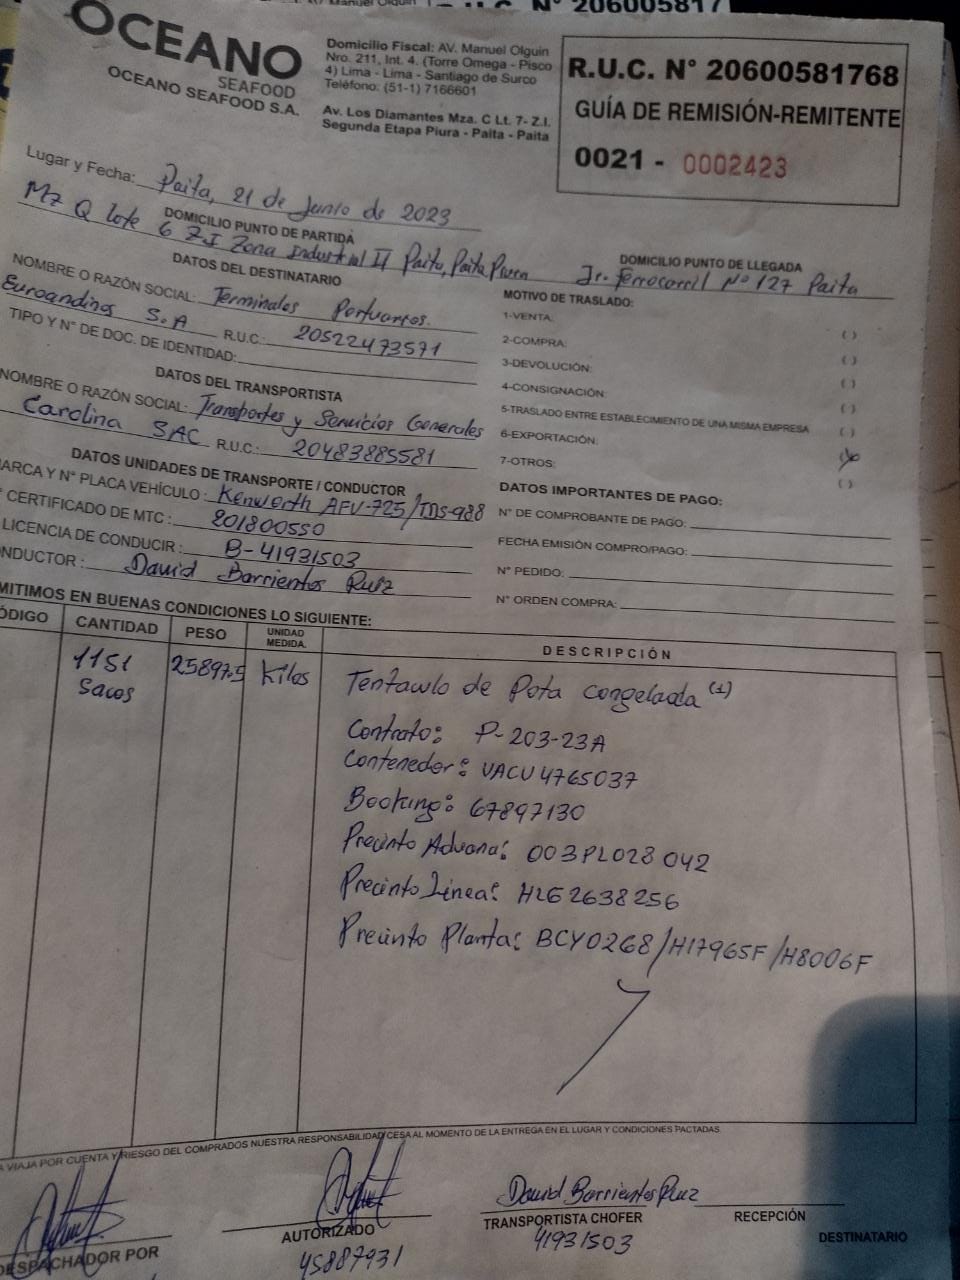 Nº 20600581
OCEANO
SEAFOOD
OCEANO SEAFOOD S.A.
Domicilio Fiscal: AV. Manuel Olguin
Nro. 211, Int. 4. (Torre Omega - Pisco
4) Lima - Lima - Santiago de Surco
Teléfono: (51-1) 7166601
Av. Los Diamantes Mza. C Lt. 7- Z.I.
Segunda Etapa Piura - Paita - Paita
R.U.C. N° 20600581768
GUÍA DE REMISIÓN-REMITENTE
0021 - 0002423
Lugar y Fecha: Paita, 21 de Junio de 2023
DOMICILIO PUNTO DE PARTIDA
Mz Q lote 6 Z.I Zona Industrial II Paita, Paita Piura
DOMICILIO PUNTO DE LLEGADA
Jr. Ferrocarril Nº 127 Paita
DATOS DEL DESTINATARIO
NOMBRE O RAZÓN SOCIAL: Terminales Portuarios
Euroandinos S.A R.U.C.: 20522473571
TIPO Y N° DE DOC. DE IDENTIDAD:
DATOS DEL TRANSPORTISTA
NOMBRE O RAZÓN SOCIAL: Transportes y Servicios Generales
Carolina SAC R.U.C.: 20483885581
DATOS UNIDADES DE TRANSPORTE / CONDUCTOR
MARCA Y N° PLACA VEHÍCULO: Kenworth AFV-725/TDS-988
CERTIFICADO DE MTC: 201800550
LICENCIA DE CONDUCIR: B-41931503
CONDUCTOR: David Barrientos Ruiz
MOTIVO DE TRASLADO:
1-VENTA: ( )
2-COMPRA: ( )
3-DEVOLUCIÓN: ( )
4-CONSIGNACIÓN: ( )
5-TRASLADO ENTRE ESTABLECIMIENTO DE UNA MISMA EMPRESA ( )
6-EXPORTACIÓN: (X)
7-OTROS: ( )
DATOS IMPORTANTES DE PAGO:
N° DE COMPROBANTE DE PAGO:
FECHA EMISIÓN COMPRO/PAGO:
N° PEDIDO:
N° ORDEN COMPRA:
MITIMOS EN BUENAS CONDICIONES LO SIGUIENTE:
ÓDIGO CANTIDAD PESO UNIDAD MEDIDA. DESCRIPCIÓN
1151 25897.5 Kilos Tentaculo de Pota congelada (1)
Sacos
Contrato: P-203-23A
Contenedor: UACU4765037
Booking: 67897130
Precinto Aduana: 003PL028042
Precinto Linea: HLG2638256
Precinto Planta: BCY0268/H17965F/H8006F
A VIAJA POR CUENTA Y RIESGO DEL COMPRADOS NUESTRA RESPONSABILIDAD CESA AL MOMENTO DE LA ENTREGA EN EL LUGAR Y CONDICIONES PACTADAS
DESPACHADOR POR
AUTORIZADO
45887931
David Barrientos Ruiz
TRANSPORTISTA CHOFER
41931503
RECEPCIÓN
DESTINATARIO